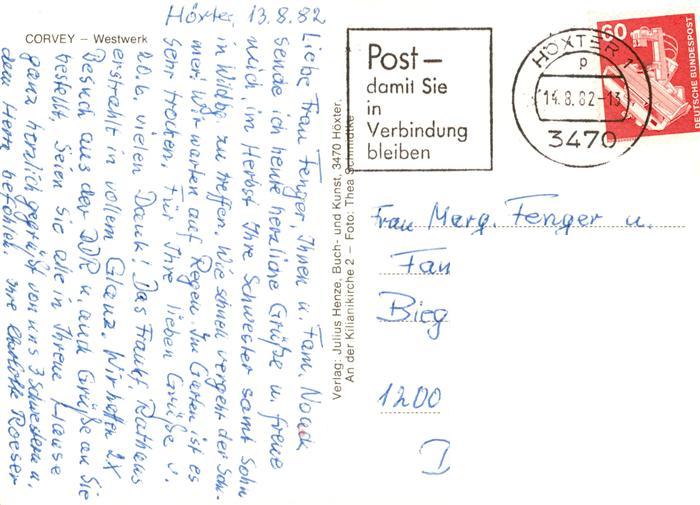 Höxter, 13.8.82
CORVEY – Westwerk
Liebe Frau Fenger, Ihnen u. Fam. Noack
sende ich heute herzliche Grüße u. freue
mich, im Herbst Ihre Schwester samt Sohn
in Wildbg. zu treffen. Wie schnell vergeht der Som-
mer! Wir warten auf Regen. Im Garten ist es
sehr trocken. Für Ihre lieben Grüße v.
20.6. vielen Dank! Das Frankf. Rathaus
erstrahlt in vollem Glanz. Wir hatten 2X
Besuch aus der DDR u. auch Grüße an Sie
bestellt. Seien Sie alle in Ihrem Hause
ganz herzlich gegrüßt von uns 3 Schwestern u.
dem Herrn befohlen. Ihre Charlotte Roeser
Verlag: Julius Henze, Buch- und Kunst, 3470 Höxter
An der Kilianikirche 2 – Foto: Thea Schmidtke
Post –
damit Sie
in
Verbindung
bleiben
HÖXTER 1
p
14.8.82-13
3470
60
DEUTSCHE BUNDESPOST
Frau Marg. Fenger u.
Fam
Bieg
1200
D